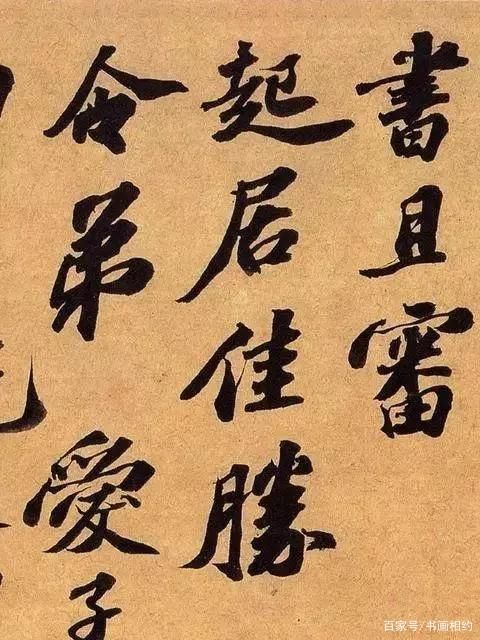 書且審
起居佳勝
令弟愛子
百家号/书画相约